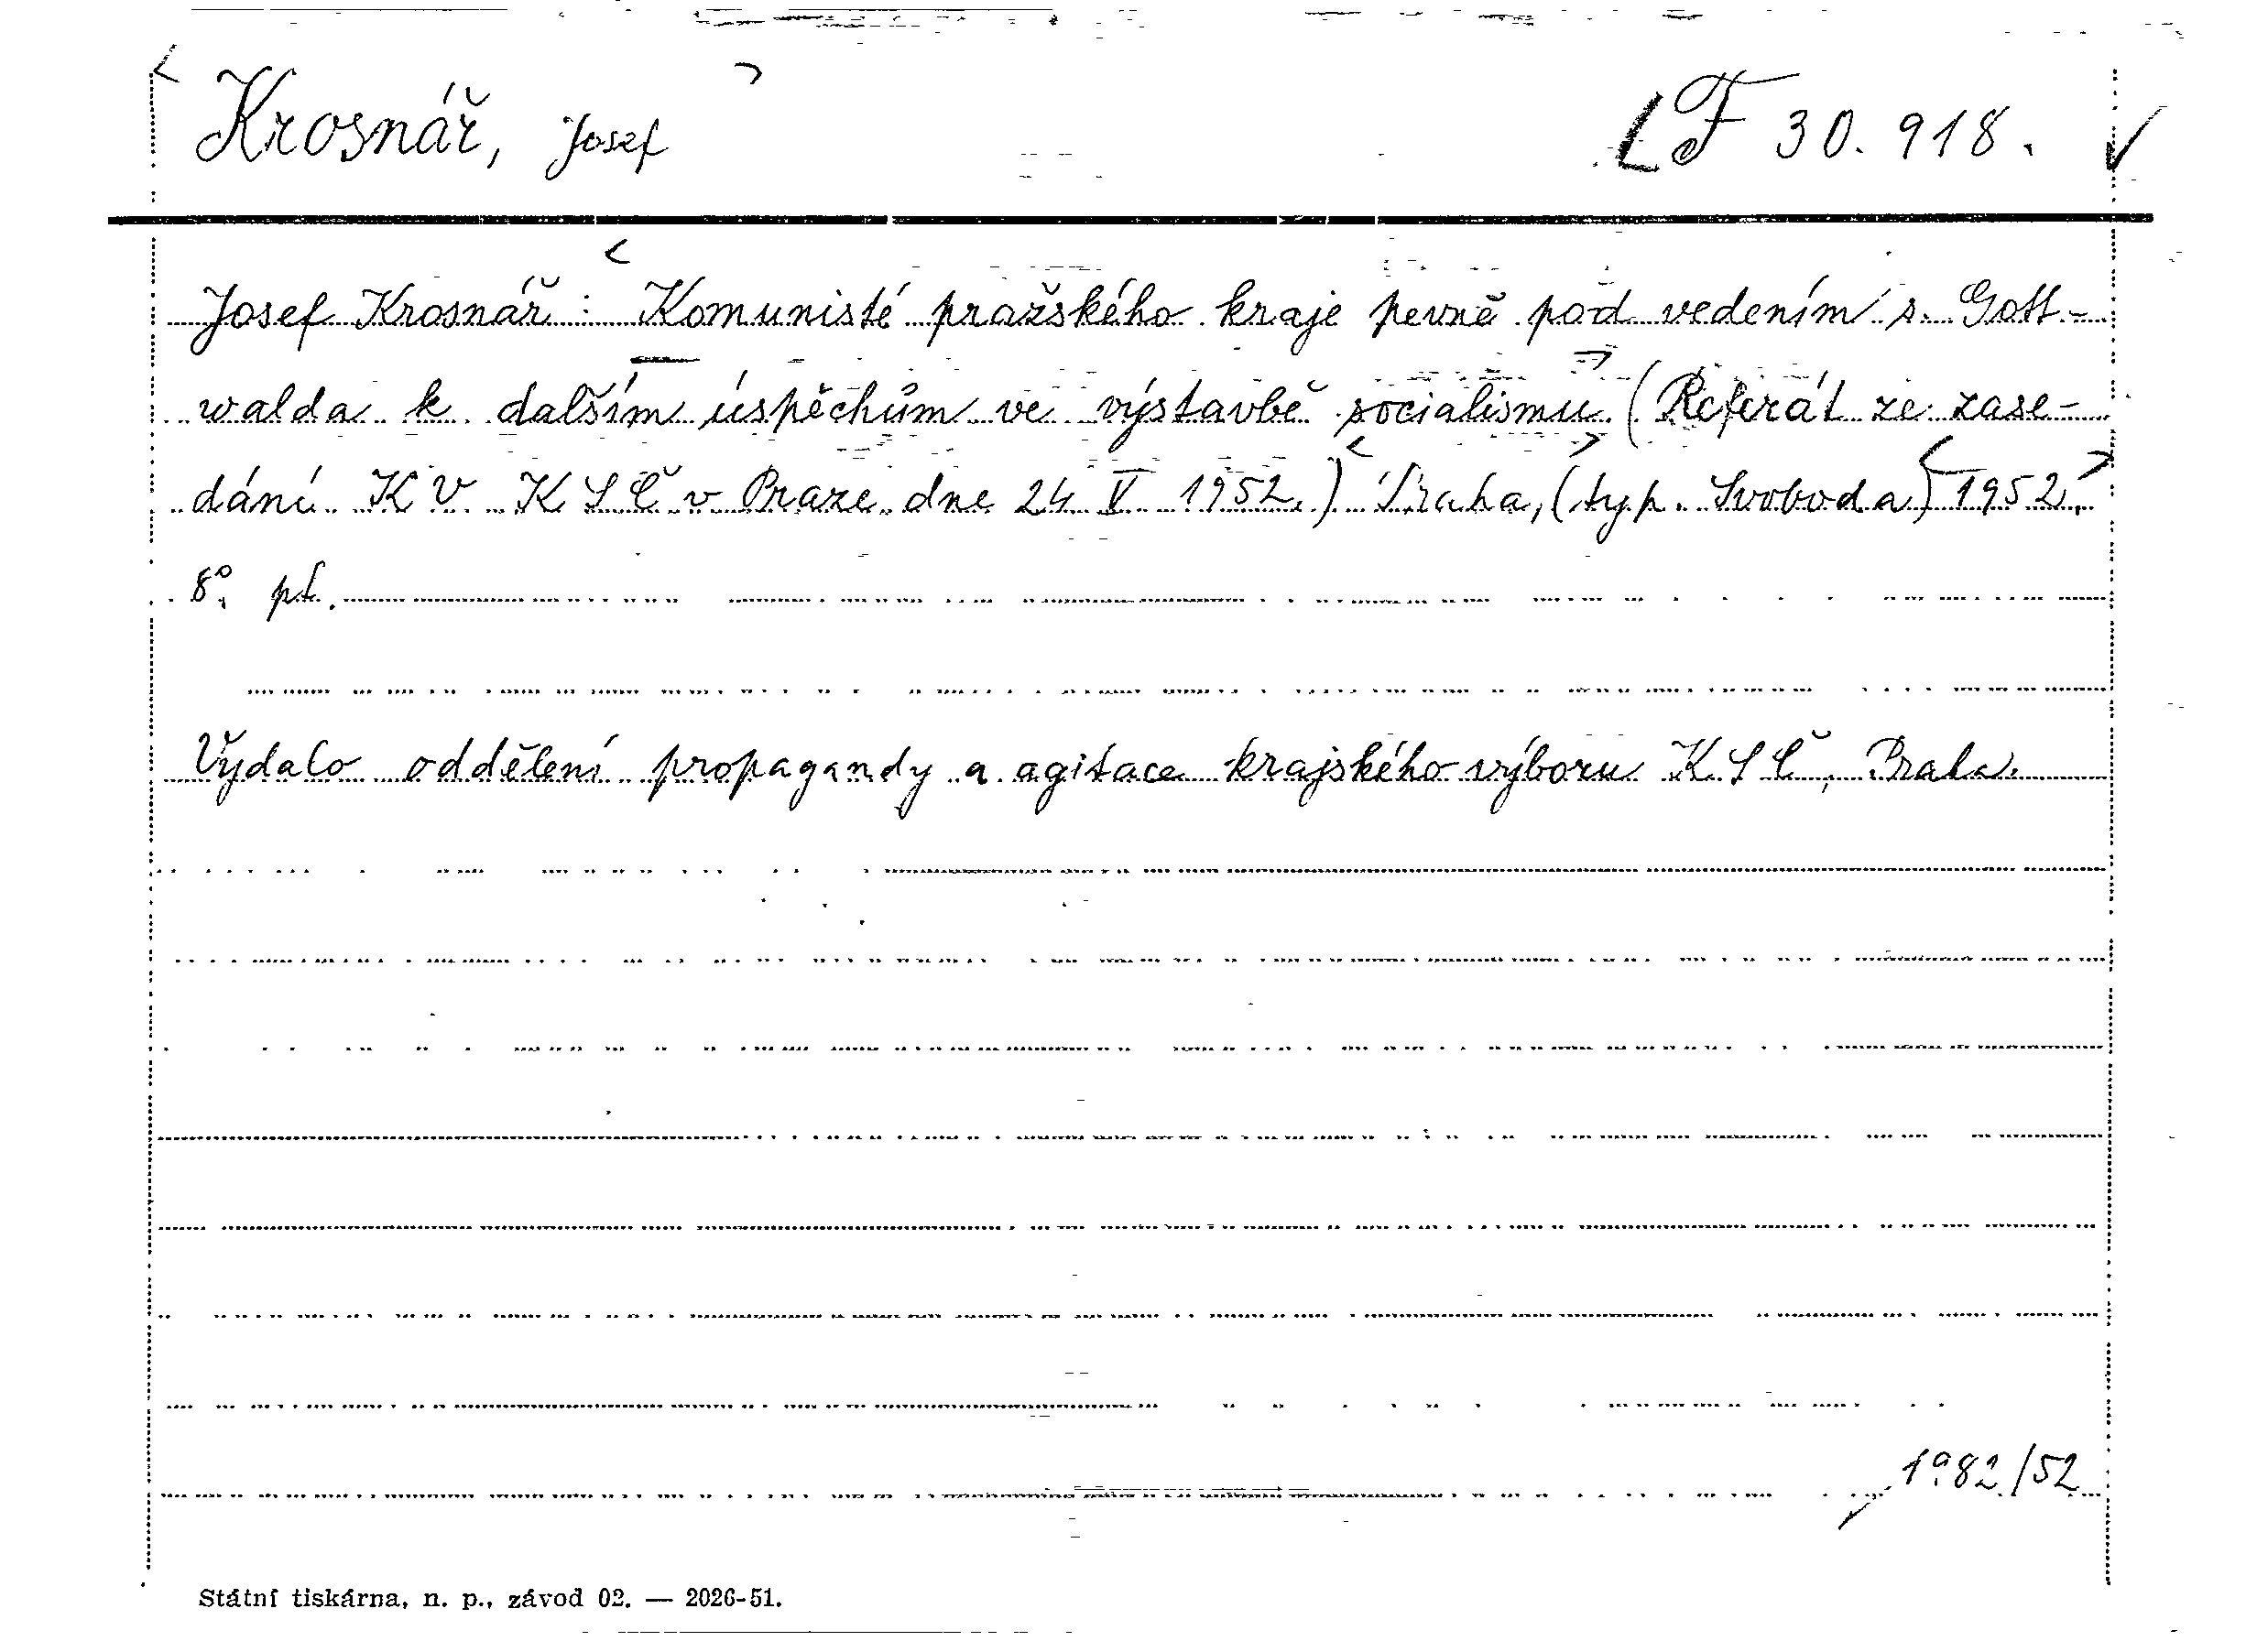 Krosnář, Josef F 30.918.
Josef Krosnář: Komunisté pražského kraje pevně pod vedením s. Gott-
walda k dalším úspěchům ve výstavbě socialismu. (Referát ze zase-
dání KV KSČ v Praze dne 24 V 1952.) Praha, (typ. Svoboda) 1952.
8°. pt.
Vydalo oddělení propagandy a agitace krajského výboru KSČ, Praha.
1982/52
Státní tiskárna, n. p., závod 02. — 2026-51.